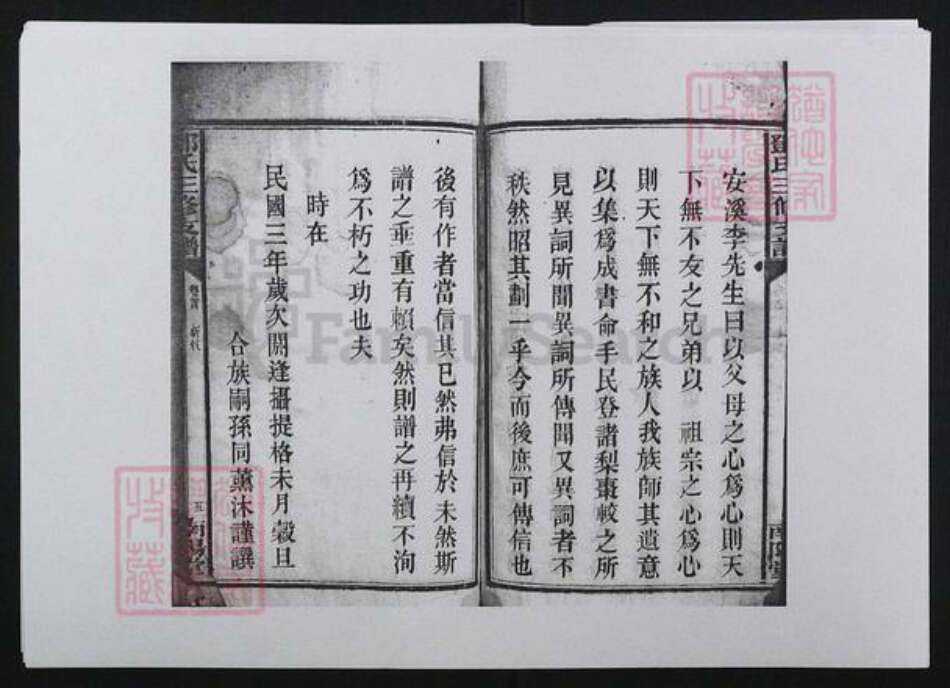 安溪李先生曰以父母之心爲心則天
下無不友之兄弟以　祖宗之心爲心
則天下無不和之族人我族師其遺意
以集爲成書命手民登諸梨棗較之所
見異詞所聞異詞所傳聞又異詞者不
秩然昭其劃一乎今而後庶可傳信也
後有作者當信其已然弗信於未然斯
譜之垂重有賴矣然則譜之再續不洵
爲不朽之功也夫
時在
民國三年歲次閼逢攝提格未月穀旦
合族嗣孫同薰沐謹譔
鄧氏三修支譜
五
南陽堂
FamilySearch
收藏